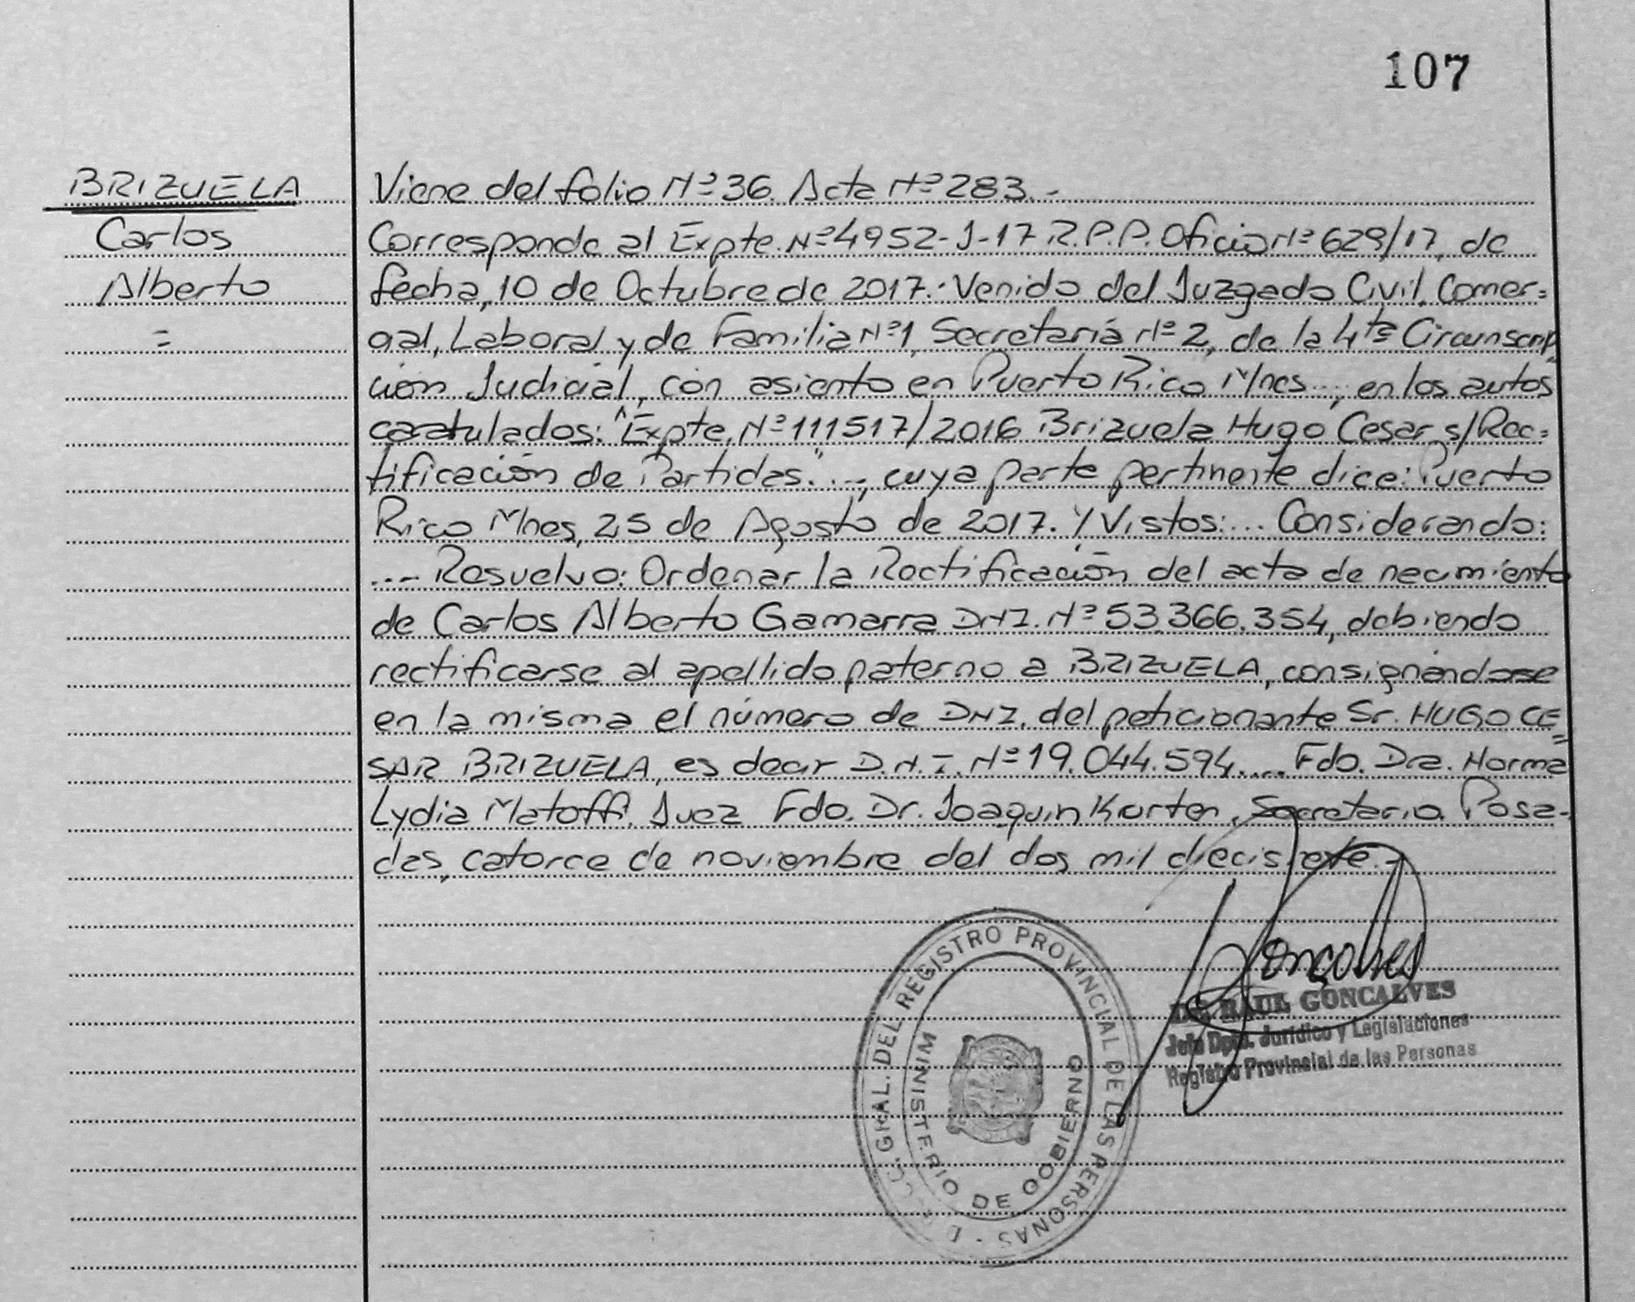 107
BRIZUELA
Carlos
Alberto
=
Viene del folio Nº 36. Acta Nº 283.-
Corresponde al Expte. Nº 4952-J-17 R.P.P. Oficio Nº 629/17, de
fecha, 10 de Octubre de 2017.- Venido del Juzgado Civil, Comer=
cial, Laboral y de Familia Nº 1, Secretaría Nº 2, de la 4ta Circunscrip
ción Judicial, con asiento en Puerto Rico Mnes..., en los autos
caratulados: "Expte. Nº 111517/2016 Brizuela Hugo Cesar s/Rec=
tificación de Partidas."..., cuya parte pertinente dice: Puerto
Rico Mnes, 25 de Agosto de 2017. Y Vistos:... Considerando:
... Resuelvo: Ordenar la Rectificación del acta de nacimiento
de Carlos Alberto Gamarra DNI. Nº 53.366.354, debiendo
rectificarse al apellido paterno a BRIZUELA, consignándose
en la misma el número de DNI. del peticionante Sr. HUGO CE=
SAR BRIZUELA, es decir D.N.I. Nº 19.044.594.... Fdo. Dra. Norma
Lydia Matoffi. Juez Fdo. Dr. Joaquin Korten, Secretario. Posa-
das, catorce de noviembre del dos mil diecisiete.-
GRAL. DEL REGISTRO PROVINCIAL DE LAS PERSONAS -
MINISTERIO DE GOBIERNO
Goncalves
Dr. RAUL GONCALVES
Jefe Dpto. Jurídico y Legislaciones
Registro Provincial de las Personas